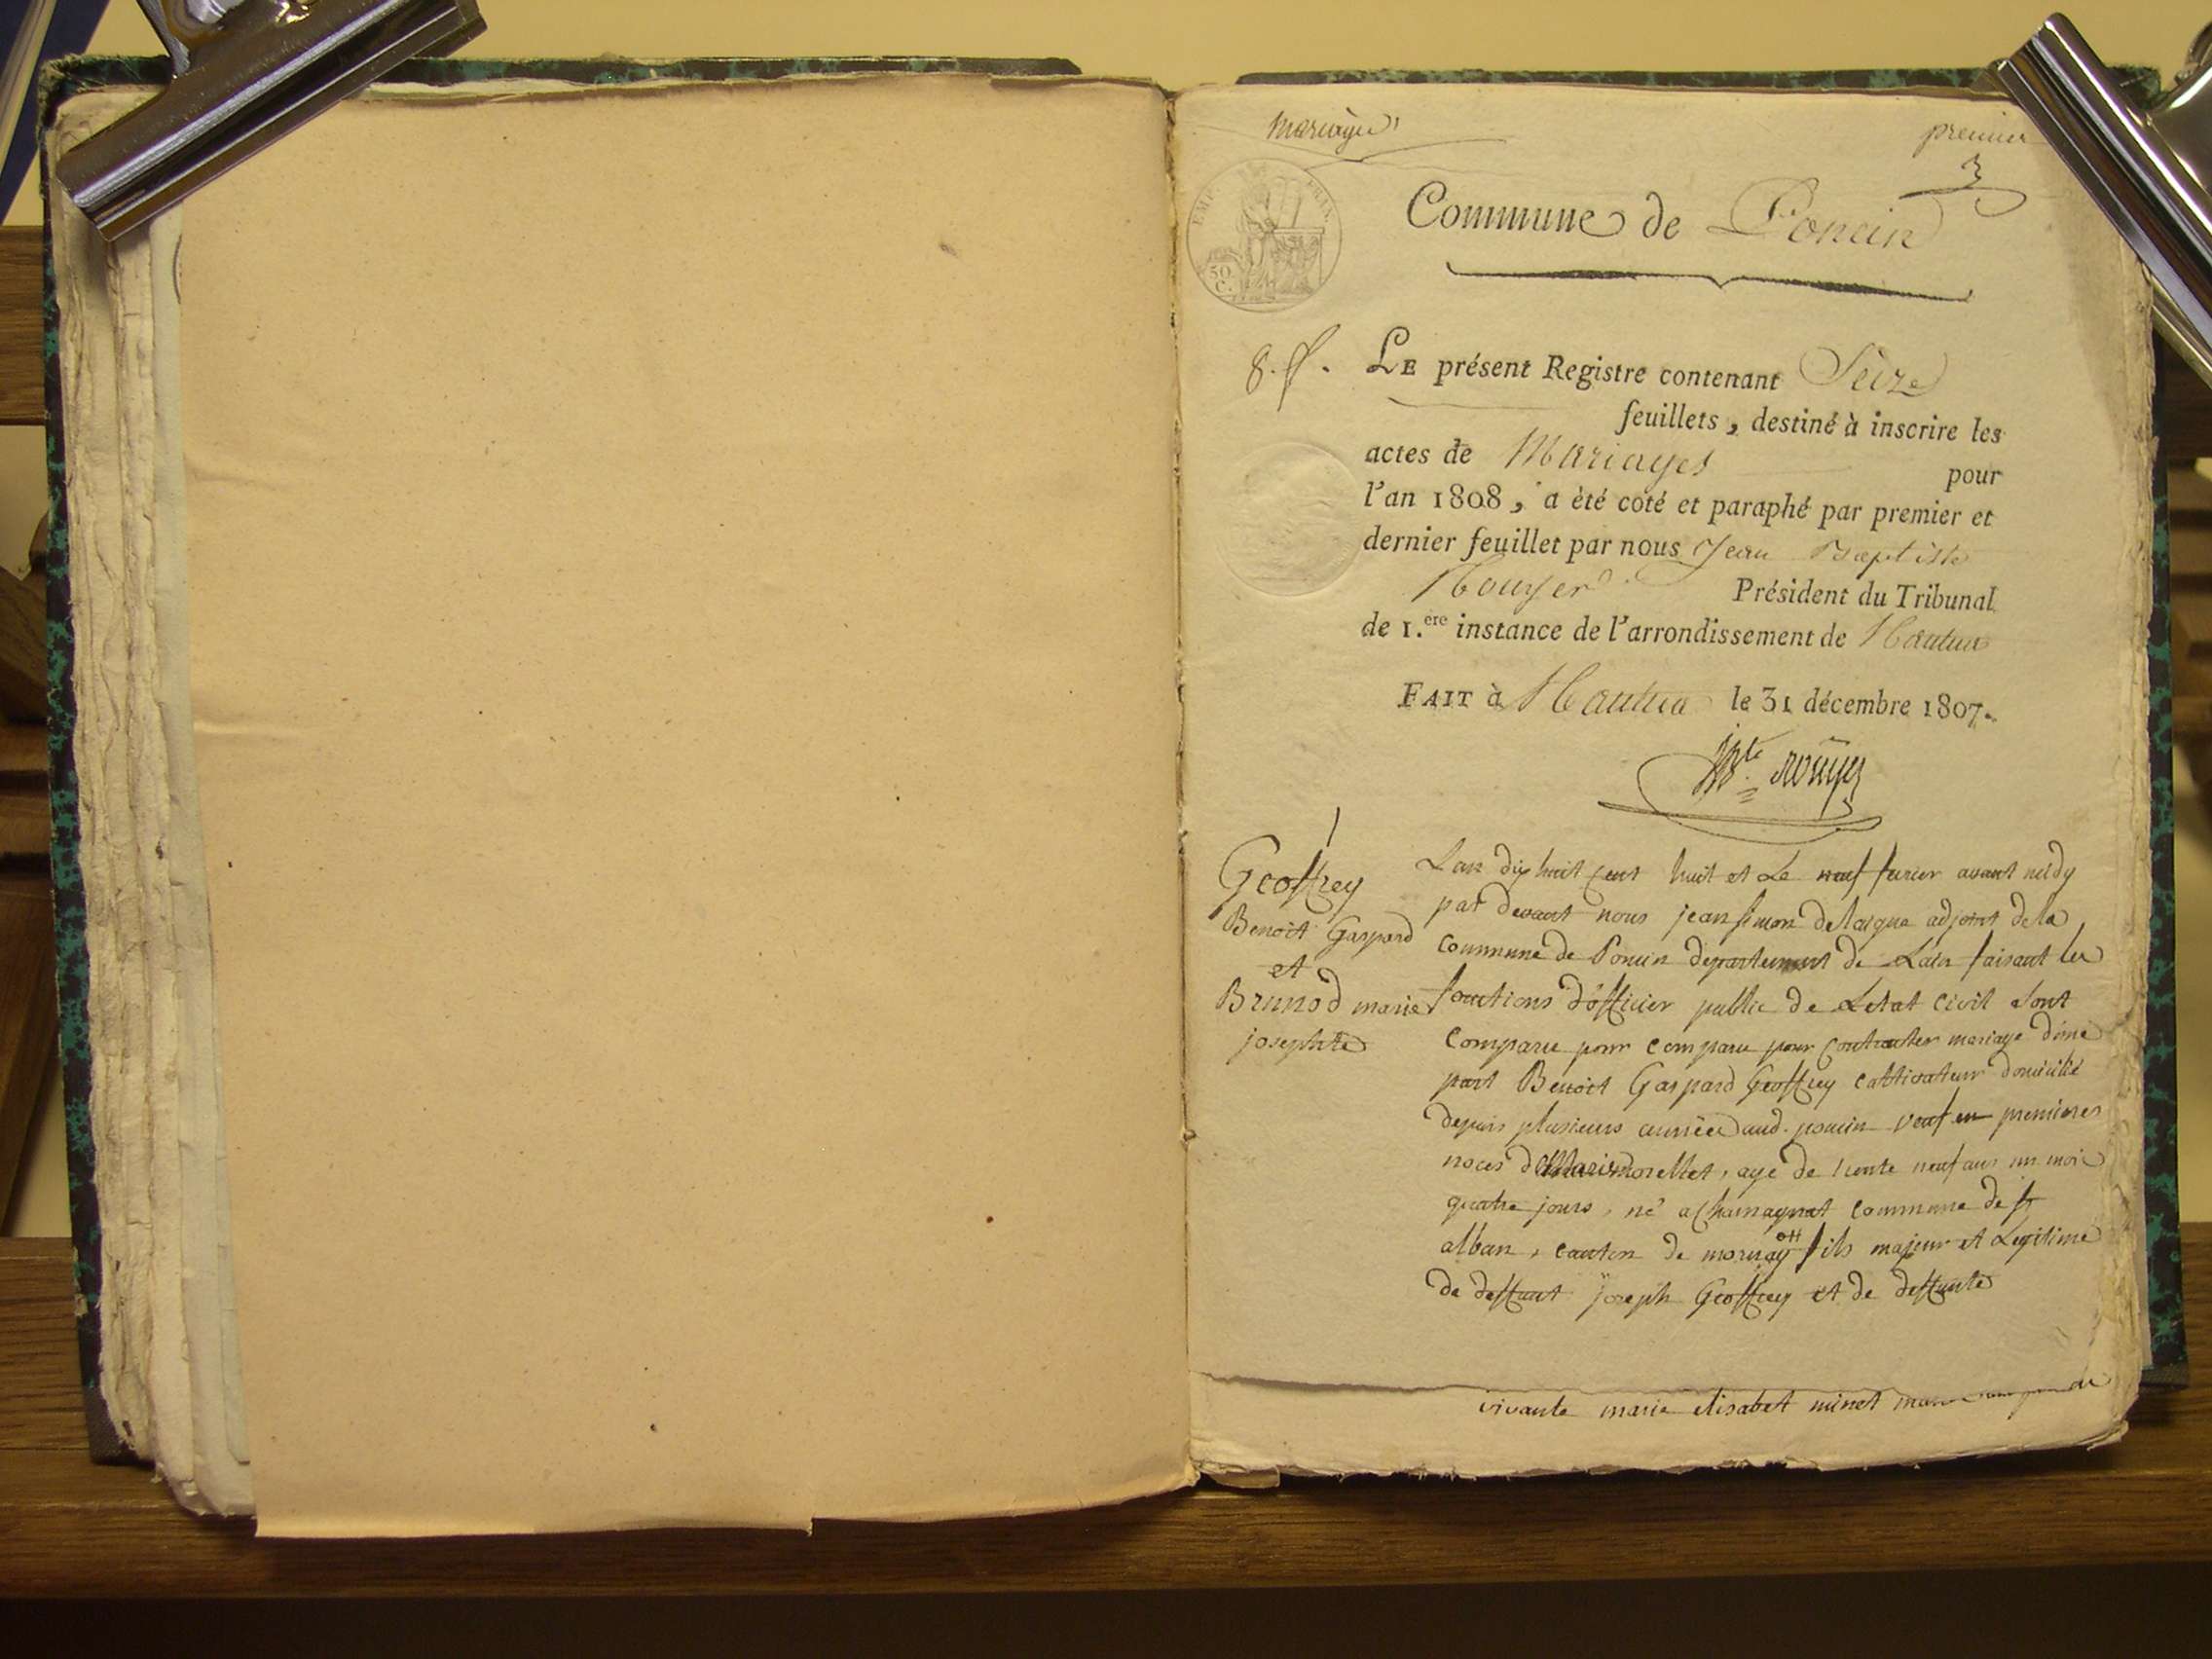 mariages
premier
EMP. FRAN.
50 C.
Commune de Poncin
8. f. LE présent Registre contenant Seize
feuillets, destiné à inscrire les
actes de Mariages pour
l'an 1808, a èté coté et paraphé par premier et
dernier feuillet par nous Jean Baptiste
Rouyer Président du Tribunal
de 1.ere instance de l'arrondissement de Nantua
FAIT à Nantua le 31 décembre 1807.
Bte. roüyer
1
Geoffrey
Benoit Gaspard
et
Brunod marie
josephte
Lan dix huit cent huit et Le neuf fevrier avant midy
par devant nous jean simon delaigue adjoint de la
commune de Poncin departement de Lain faisant les
fonctions dofficier public de Letat civil sont
comparu pour comparu pour contracter mariage dune
part Benoit Gaspard Geoffrey cultivateur domicilié
depuis plusieurs années aud. poncin veuf en premieres
noces de marie morellet, age de trente neuf ans un mois
quatre jours, né a Chamagnat commune de st
alban, canton de mornay fils majeur et Legitime
de deffunt joseph Geoffrey et de deffunte
vivante marie elisabet minet